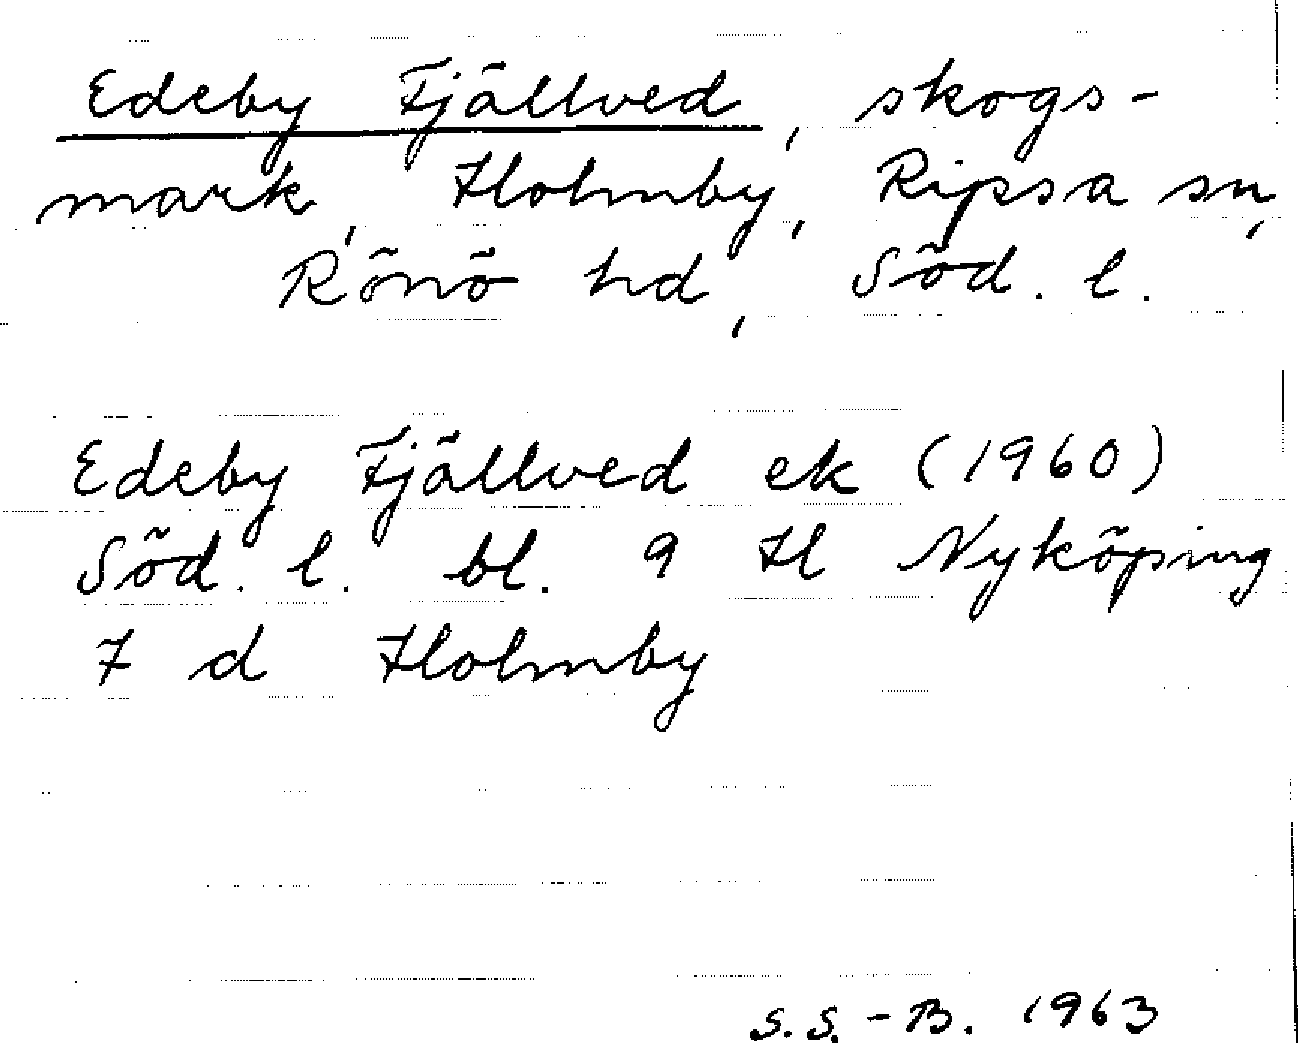 Edeby Fjällved, skogs-
mark, Holmby, Ripsa sn,
Rönö hd, Söd. l.
Edeby Fjällved ek (1960)
Söd. l. bl. 9 H Nyköping
7 d Holmby
S.S.-B. 1963